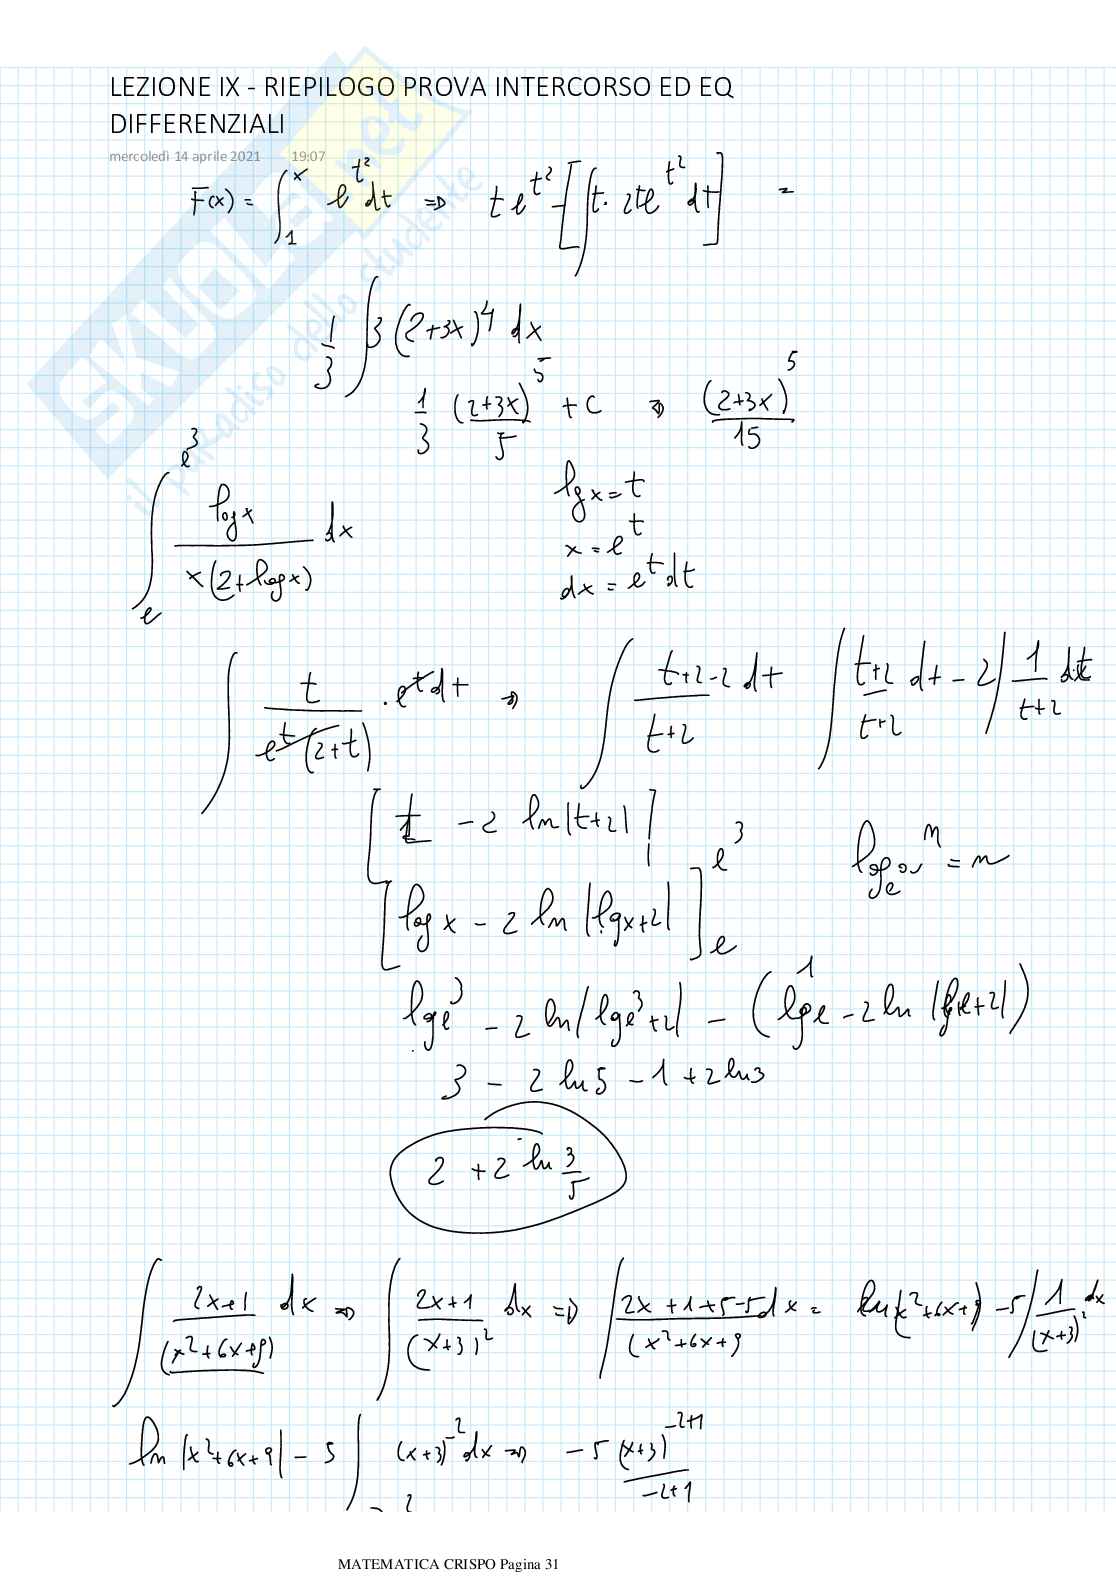 LEZIONE IX - RIEPILOGO PROVA INTERCORSO ED EQ
DIFFERENZIALI
mercoledì 14 aprile 2021 19:07
SKUOLA.net
il paradiso dello studente
F(x) = ∫₁ˣ e^{t²} dt ⇒ t e^{t²} - [∫ t · 2t e^{t²} dt] =
1/3 ∫ 3 (2+3x)^4 dx
1/3 (2+3x)^5/5 + c ⇒ (2+3x)^5/15
∫_e^{e^3} log x / x(2+log x) dx
lg x = t
x = e^t
dx = e^t dt
∫ t / e^t (2+t) · e^t dt ⇒ ∫ t+2-2 / t+2 dt ∫ t+2 / t+2 dt - 2 ∫ 1 / t+2 dt
[t - 2 ln|t+2|]
log_e^n = n
[log x - 2 ln |lg x+2|]_e^{e^3}
lg e^3 - 2 ln |lg e^3+2| - (lg e - 2 ln |lg e+2|)
1
3 - 2 ln 5 - 1 + 2 ln 3
2 + 2 ln 3/5
∫ 2x+1 / (x²+6x+9) dx ⇒ ∫ 2x+1 / (x+3)² dx ⇒ ∫ 2x+1+5-5 / (x²+6x+9 dx = ln(x²+6x+9) -5 ∫ 1 / (x+3)² dx
ln |x²+6x+9| - 5 ∫ (x+3)^{-2} dx ⇒ -5 (x+3)^{-2+1} / -2+1
MATEMATICA CRISPO Pagina 31